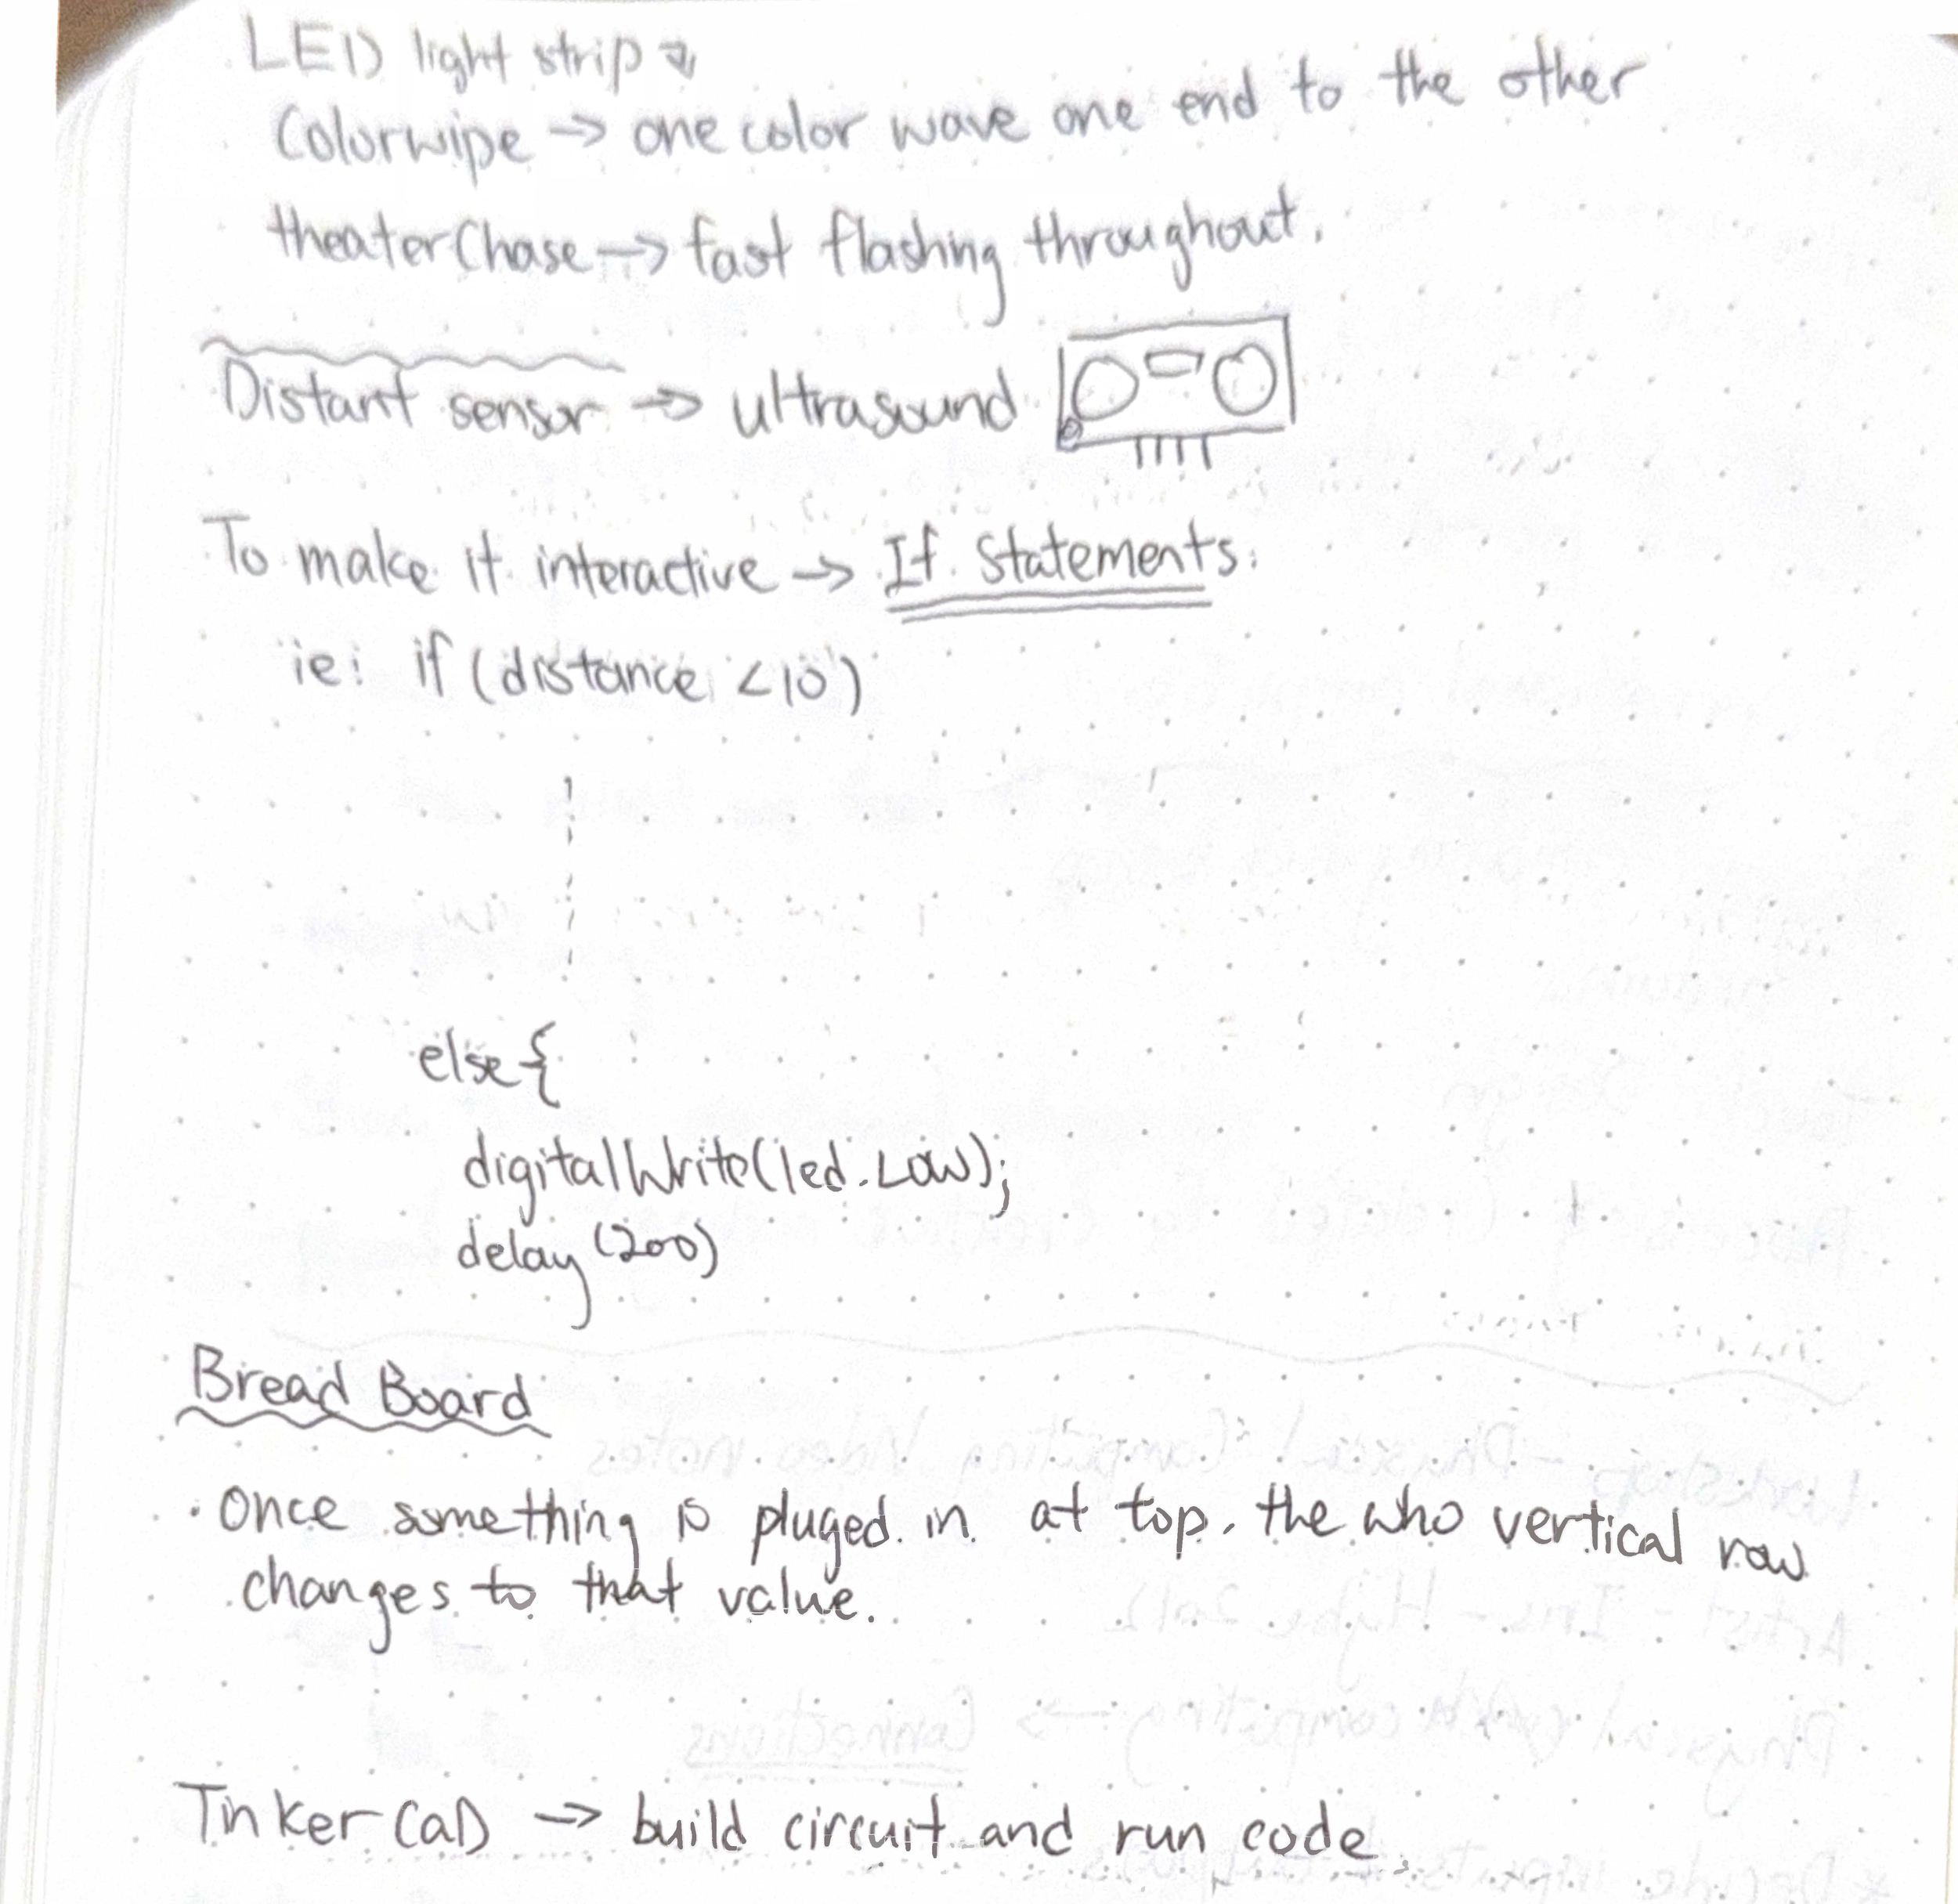 LED light strip ↴
Colorwipe → one color wave one end to the other
theaterChase → fast flashing throughout.
Distant sensor → ultrasound
To make it interactive → If Statements.
ie: if (distance <10)
else {
digitalWrite(led.LOW);
delay (200)
Bread Board
· Once something is pluged in at top, the who vertical row
changes to that value.
TinkerCaD → build circuit and run code.